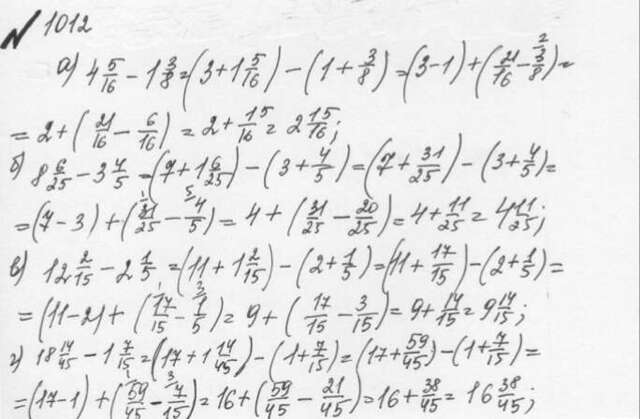 № 1012
а) 4 5/16 - 1 3/8 = (3 + 1 5/16) - (1 + 3/8) = (3-1) + (21/16 - 3/8 ²) =
= 2 + (21/16 - 6/16) = 2 + 15/16 = 2 15/16;
б) 8 6/25 - 3 4/5 = (7 + 1 6/25) - (3 + 4/5) = (7 + 31/25) - (3 + 4/5) =
= (7 - 3) + (31/25 ¹ - 4/5 ⁵) = 4 + (31/25 - 20/25) = 4 + 11/25 = 4 11/25;
в) 12 2/15 - 2 1/5 = (11 + 1 2/15) - (2 + 1/5) = (11 + 17/15) - (2 + 1/5) =
= (11 - 2) + (17/15 ¹ - 1/5 ³) = 9 + (17/15 - 3/15) = 9 + 14/15 = 9 14/15;
г) 18 14/45 - 1 7/15 = (17 + 1 14/45) - (1 + 7/15) = (17 + 59/45) - (1 + 7/15) =
= (17-1) + (59/45 ¹ - 7/15 ³) = 16 + (59/45 - 21/45) = 16 + 38/45 = 16 38/45;